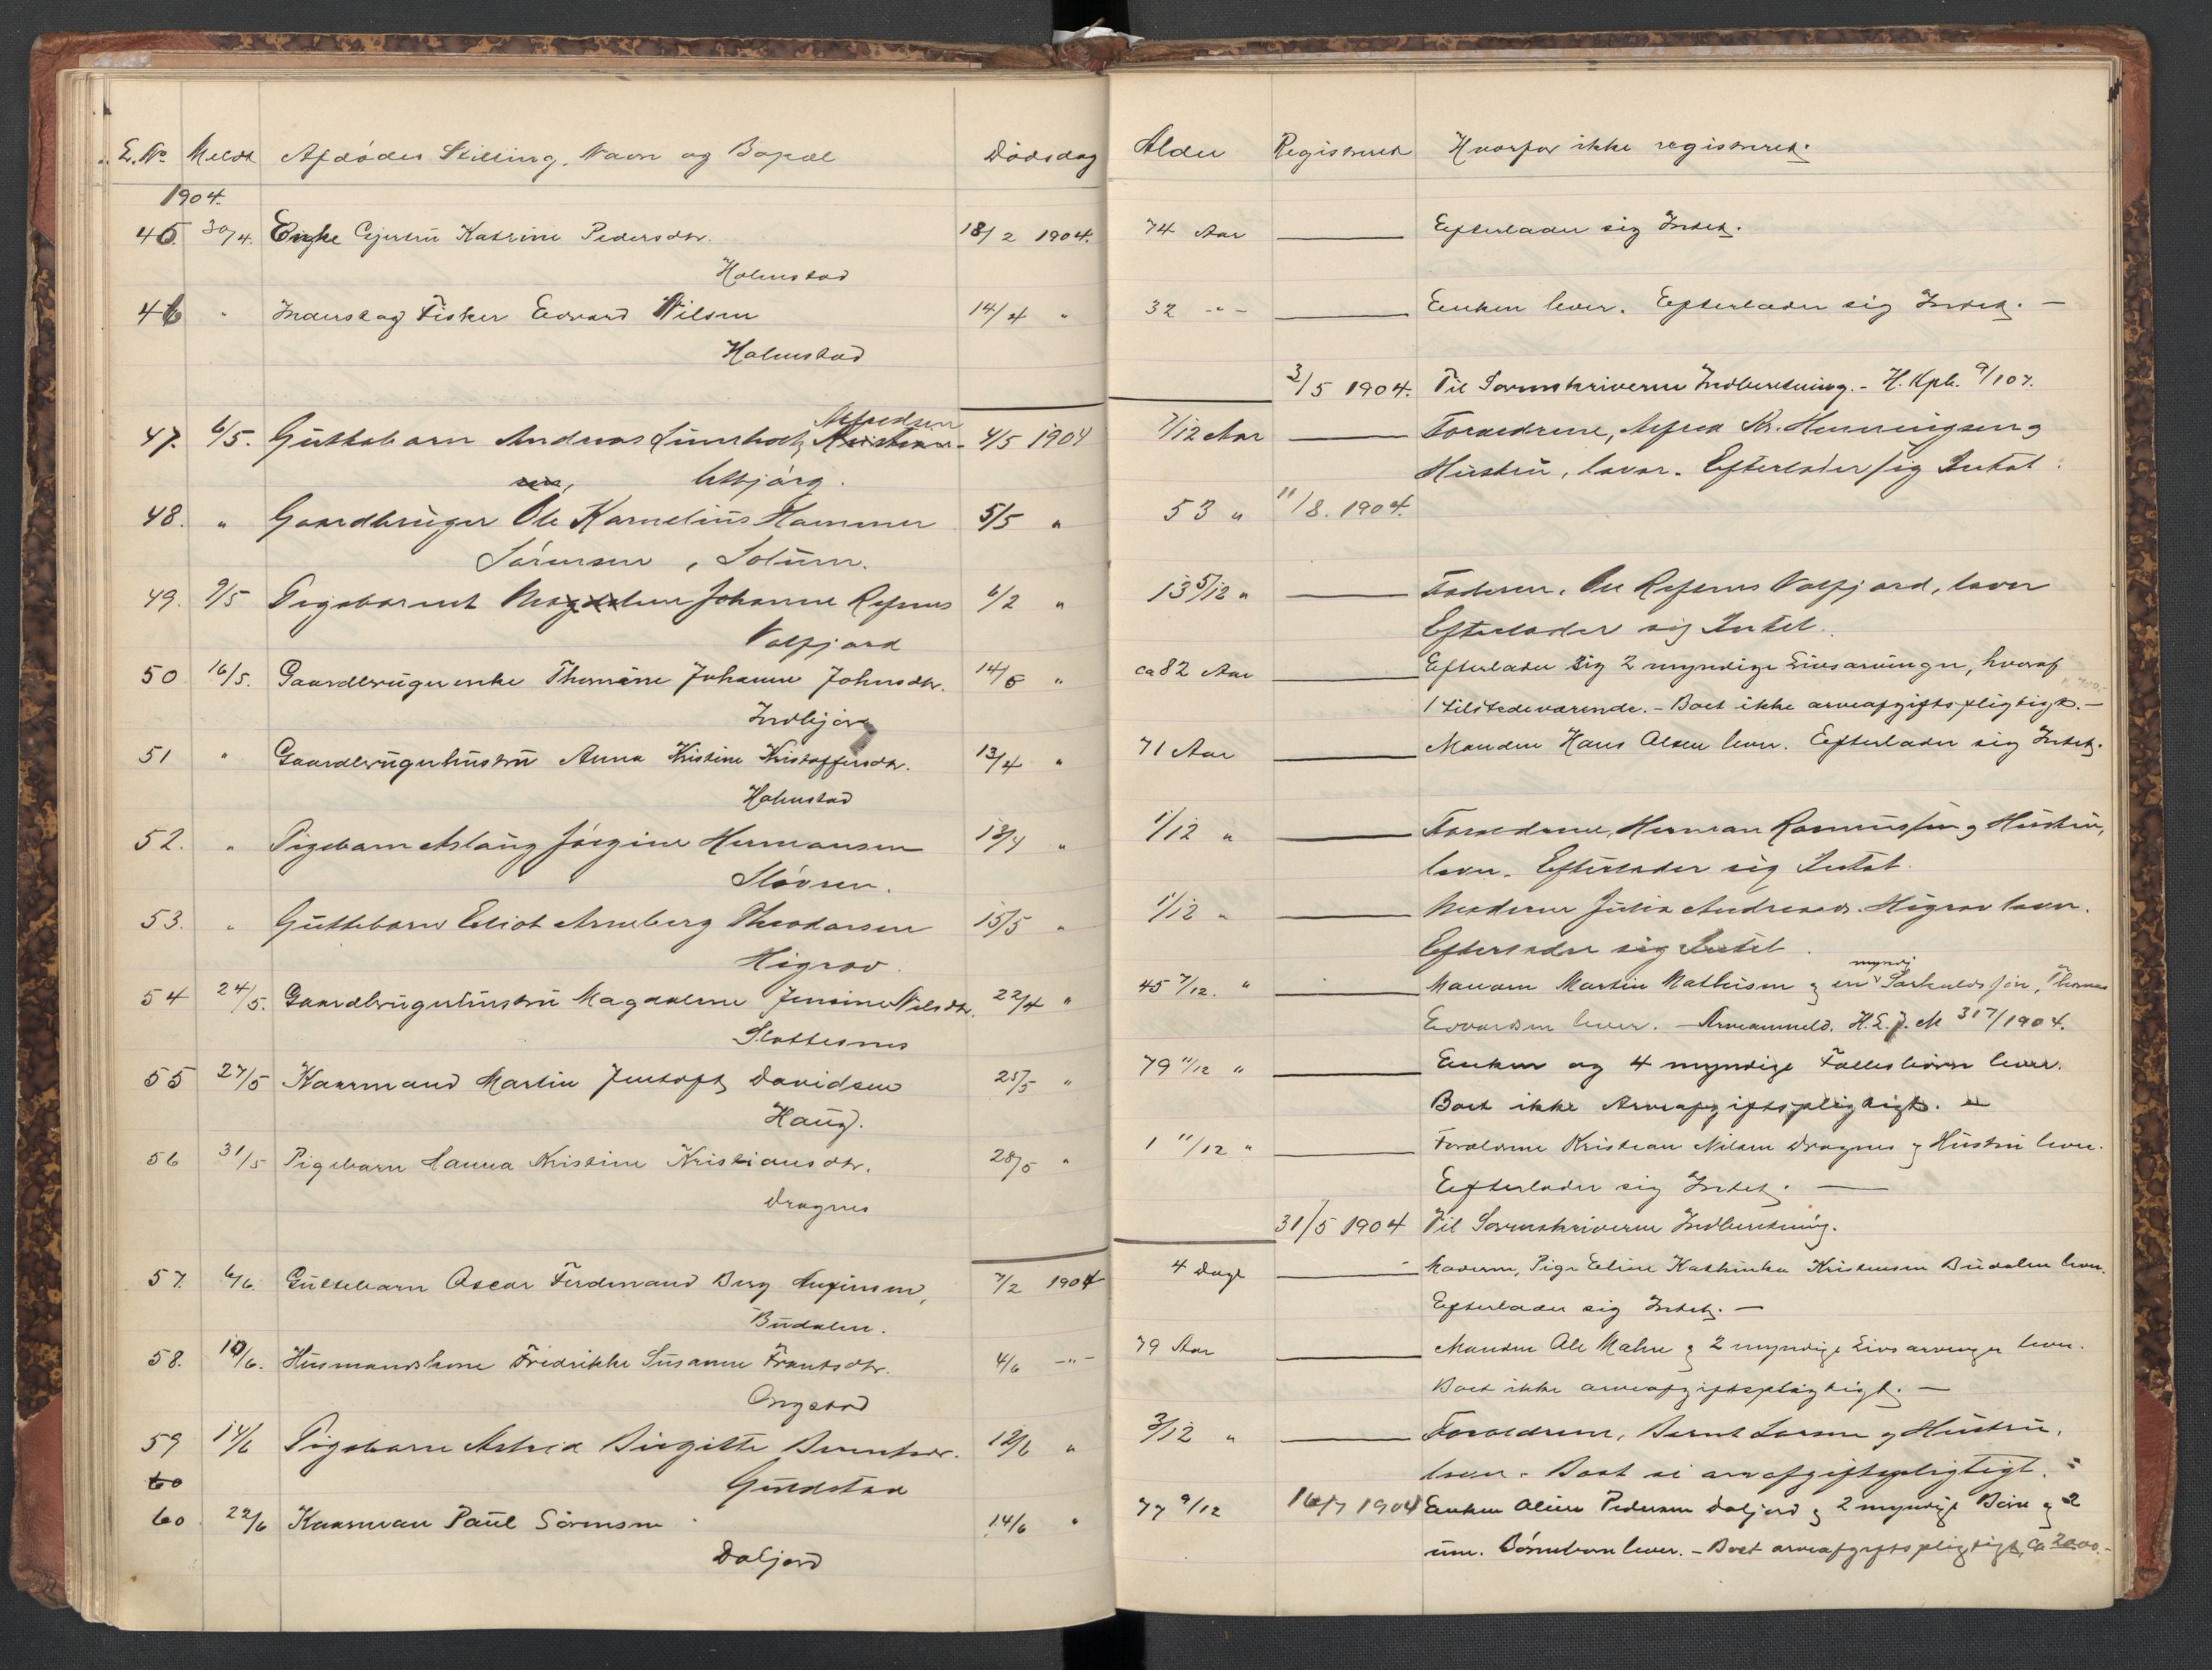 L.No Meldt Afdødes Stilling, Navn og Bopæl Dødsdag Alder Registreret Hvorfor ikke registreret.
1904.
45. 30/4. Enke Gjertru Katrine Pedersdtr. 18/2 1904. 74 Aar Efterlader sig Intet.
Holmstad
46 " Inderst og Fisker Edvard Nilsen 14/4 " 32 -"- Enken lever. Efterlader sig Intet. —
Holmstad
3/5 1904. Til Sorenskriveren Indberetning. - H. Kpb. 9/107.
Alfredsen
47. 6/5. Guttebarn Andreas 4/5 1904 7/12 Aar Forældrene, Alfred Kr. Henningsen og
sen, Utbjørg. Hustru, lever. Efterlader sig Intet.
48. " Gaardbruger Ole Kornelius Hammer 5/5 " 53 " 11/8. 1904.
Sørensen, Solum.
49. 9/5 Pigebarnet Magdalene Johanne Refsnes 6/2 " 13 5/12 " Faderen, Ole Refsnes Valfjord, lever
Valfjord Efterlader sig Intet.
50 16/5. Gaardbrugerenke Thomine Johanne Johnsdtr. 14/5 " ca 82 Aar Efterlader sig 2 myndige Livsarvinger, hvoraf
Indbjør 1 tilstedeværende. - Boet ikke arveafgiftspligtigt. —
51 " Gaardbrugerhustru Anna Kristine Kristoffersdtr. 13/4 " 71 Aar Manden Hans Olsen lever. Efterlader sig Intet.
Holmstad
52. " Pigebarn Aslaug Jørgine Hermansen 18/4 " 1/12 " Forældrene, Herman Rasmussen og Hustru,
Sløvsen. lever. Efterlader sig Intet.
53. " Guttebarn Eliot Arneberg Theodorsen 15/5 " 1/12 " Moderen Julia Andreasdr. Higrav lever.
Higrav. Efterlader sig Intet.
myndj
54 24/5. Gaardbrugerhustru Magdalene Jensine Nilsdtr. 22/4 " 45 7/12. " Manden Martin Mathisen og en Særkuldssøn, Thomas
Slottesnes Edvardsen lever. — Arveanmeld. H.L.J. No 317/1904.
55 27/5 Kaarmand Martin Jentoft Davidsen 25/5 " 79 11/12 " Enken og 4 myndige Fællesbørn lever.
Haug. Boet ikke Arveafgiftspligtigt. —
56 31/5 Pigebarn Hanna Kristine Kristiansdtr. 28/5 " 1 11/12 " Forældrene Kristian Nilsen Dragnes og Hustru lever.
Dragnes Efterlader sig Intet. —
31/5 1904 Til Sorenskriveren Indberetning.
57. 6/6. Guttebarn Oscar Ferdinand Berg 7/2 1904 4 Dage Moderen, Pige Eline Kathinka Kristensen Budalen lever.
Budalen. Efterlader sig Intet. —
58. 10/6. Husmandskone Fredrikke Susanne Frantsdtr. 4/6 -"- 79 Aar Manden Ole Malm og 2 myndige Livsarvinger lever.
Ongstad Boet ikke arveafgiftspligtigt. —
59 14/6 Pigebarn Astrid Birgitte Berntsdr. 12/6 " 3/12 " Forældrene, Bernt Larsen og Hustru,
60 Guldstad lever. Boet ei arveafgiftspligtigt.
60 22/6 Kaarman Paul Sørensen 14/6 " 77 9/12 16/7 1904 Enken Oline Pedersen Daljord og 2 myndige Børn og 2
Daljord um. Børnebørn lever. - Boet arveafgiftspligtigt, ca 2000.-